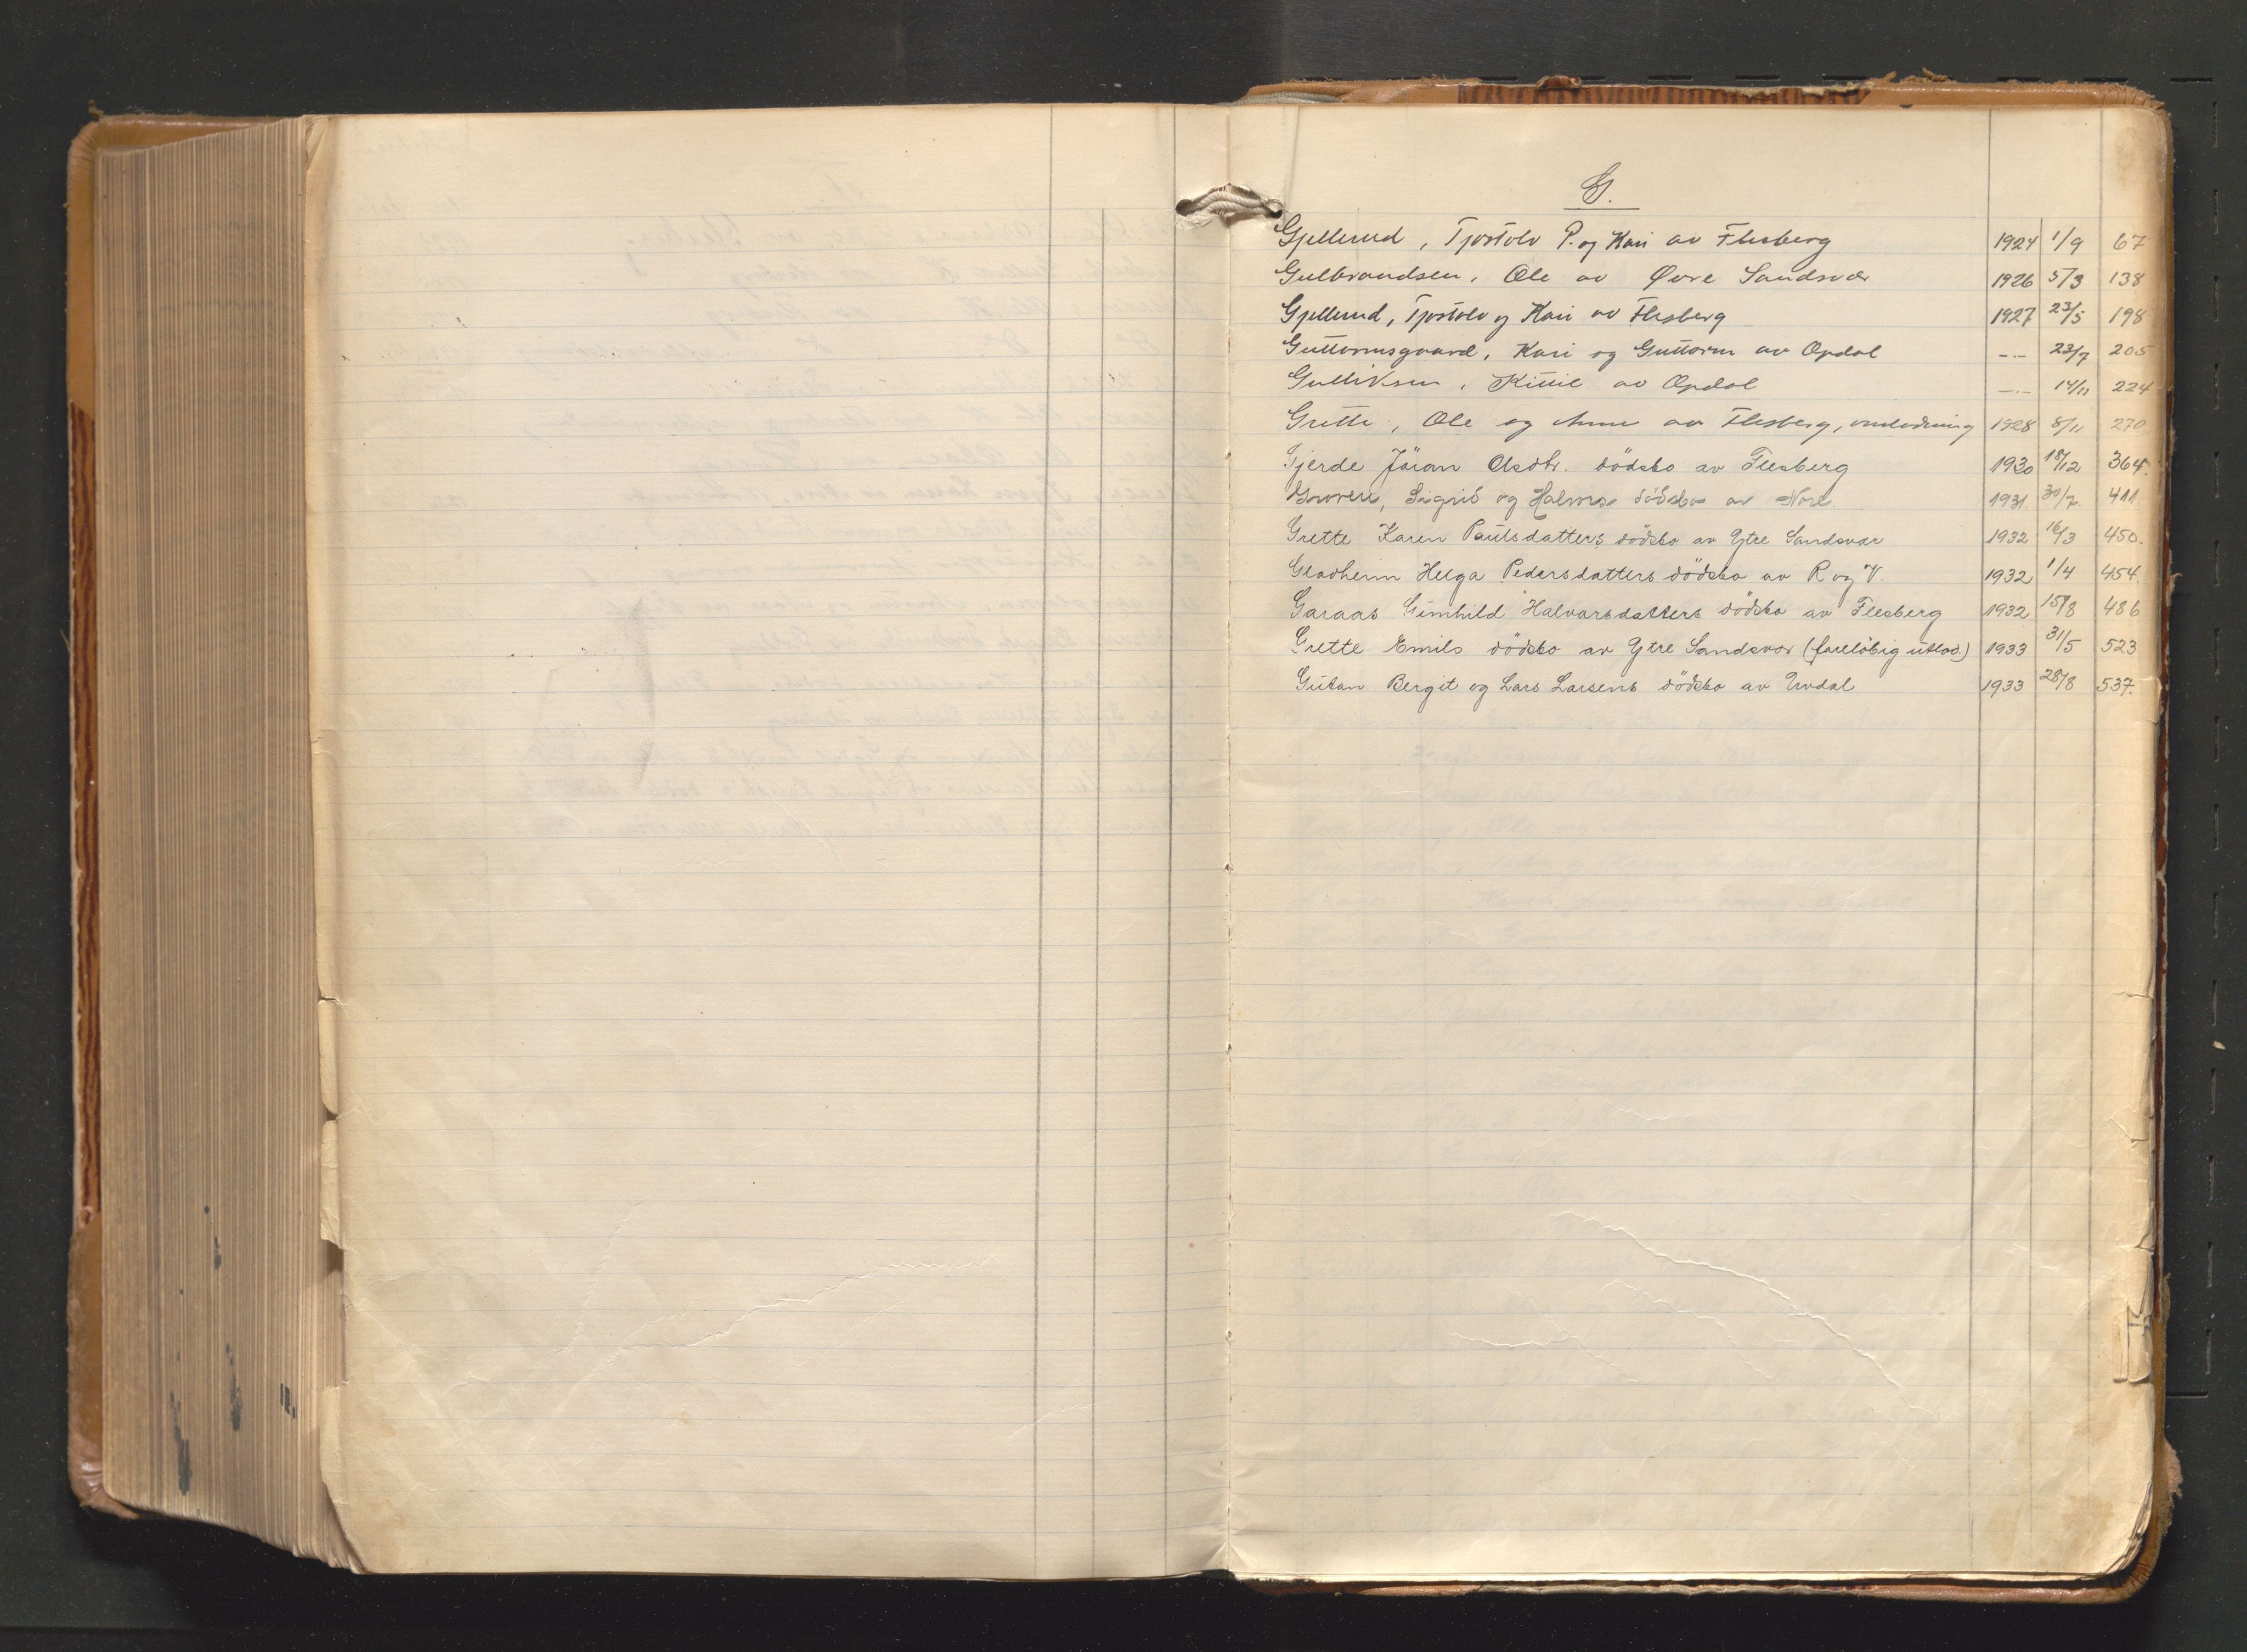 G.
Gjellerud, Tjostolv P. og Kari av Flesberg 1924 1/9 67
Gulbrandsen, Ole av Øvre Sandsvær 1926 5/3 138
Gjellerud, Tjostolv og Kari av Flesberg 1927 23/5 198
Guttormsgaard, Kari og Guttorm av Opdal -"- 23/7 205
Gulliksen, Kittil av Opdal -"- 14/11 224
Grette, Ole og Anne av Flesberg, omlodning 1928 8/11 270
Gjerde Jöran Olsdtr. dödsbo av Flesberg 1930 18/12 364.
Sigrid og Halvors dödsbo av Nore 1931. 30/7. 411
Grette Karen Paulsdatters dödsbo av Ytre Sandsvær 1932 16/3 450.
Gladheim Helga Pedersdatters dödsbo av R og V. 1932 1/4 454.
Garaas Gunhild Halvorsdatters dödsbo av Flesberg 1932 15/8 486
Grette Emils dödsbo av Ytre Sandsvær (foreløbig utlod.) 1933 31/5 523
Bergit og Lars Larsens dödsbo av Uvdal 1933 28/8 537.